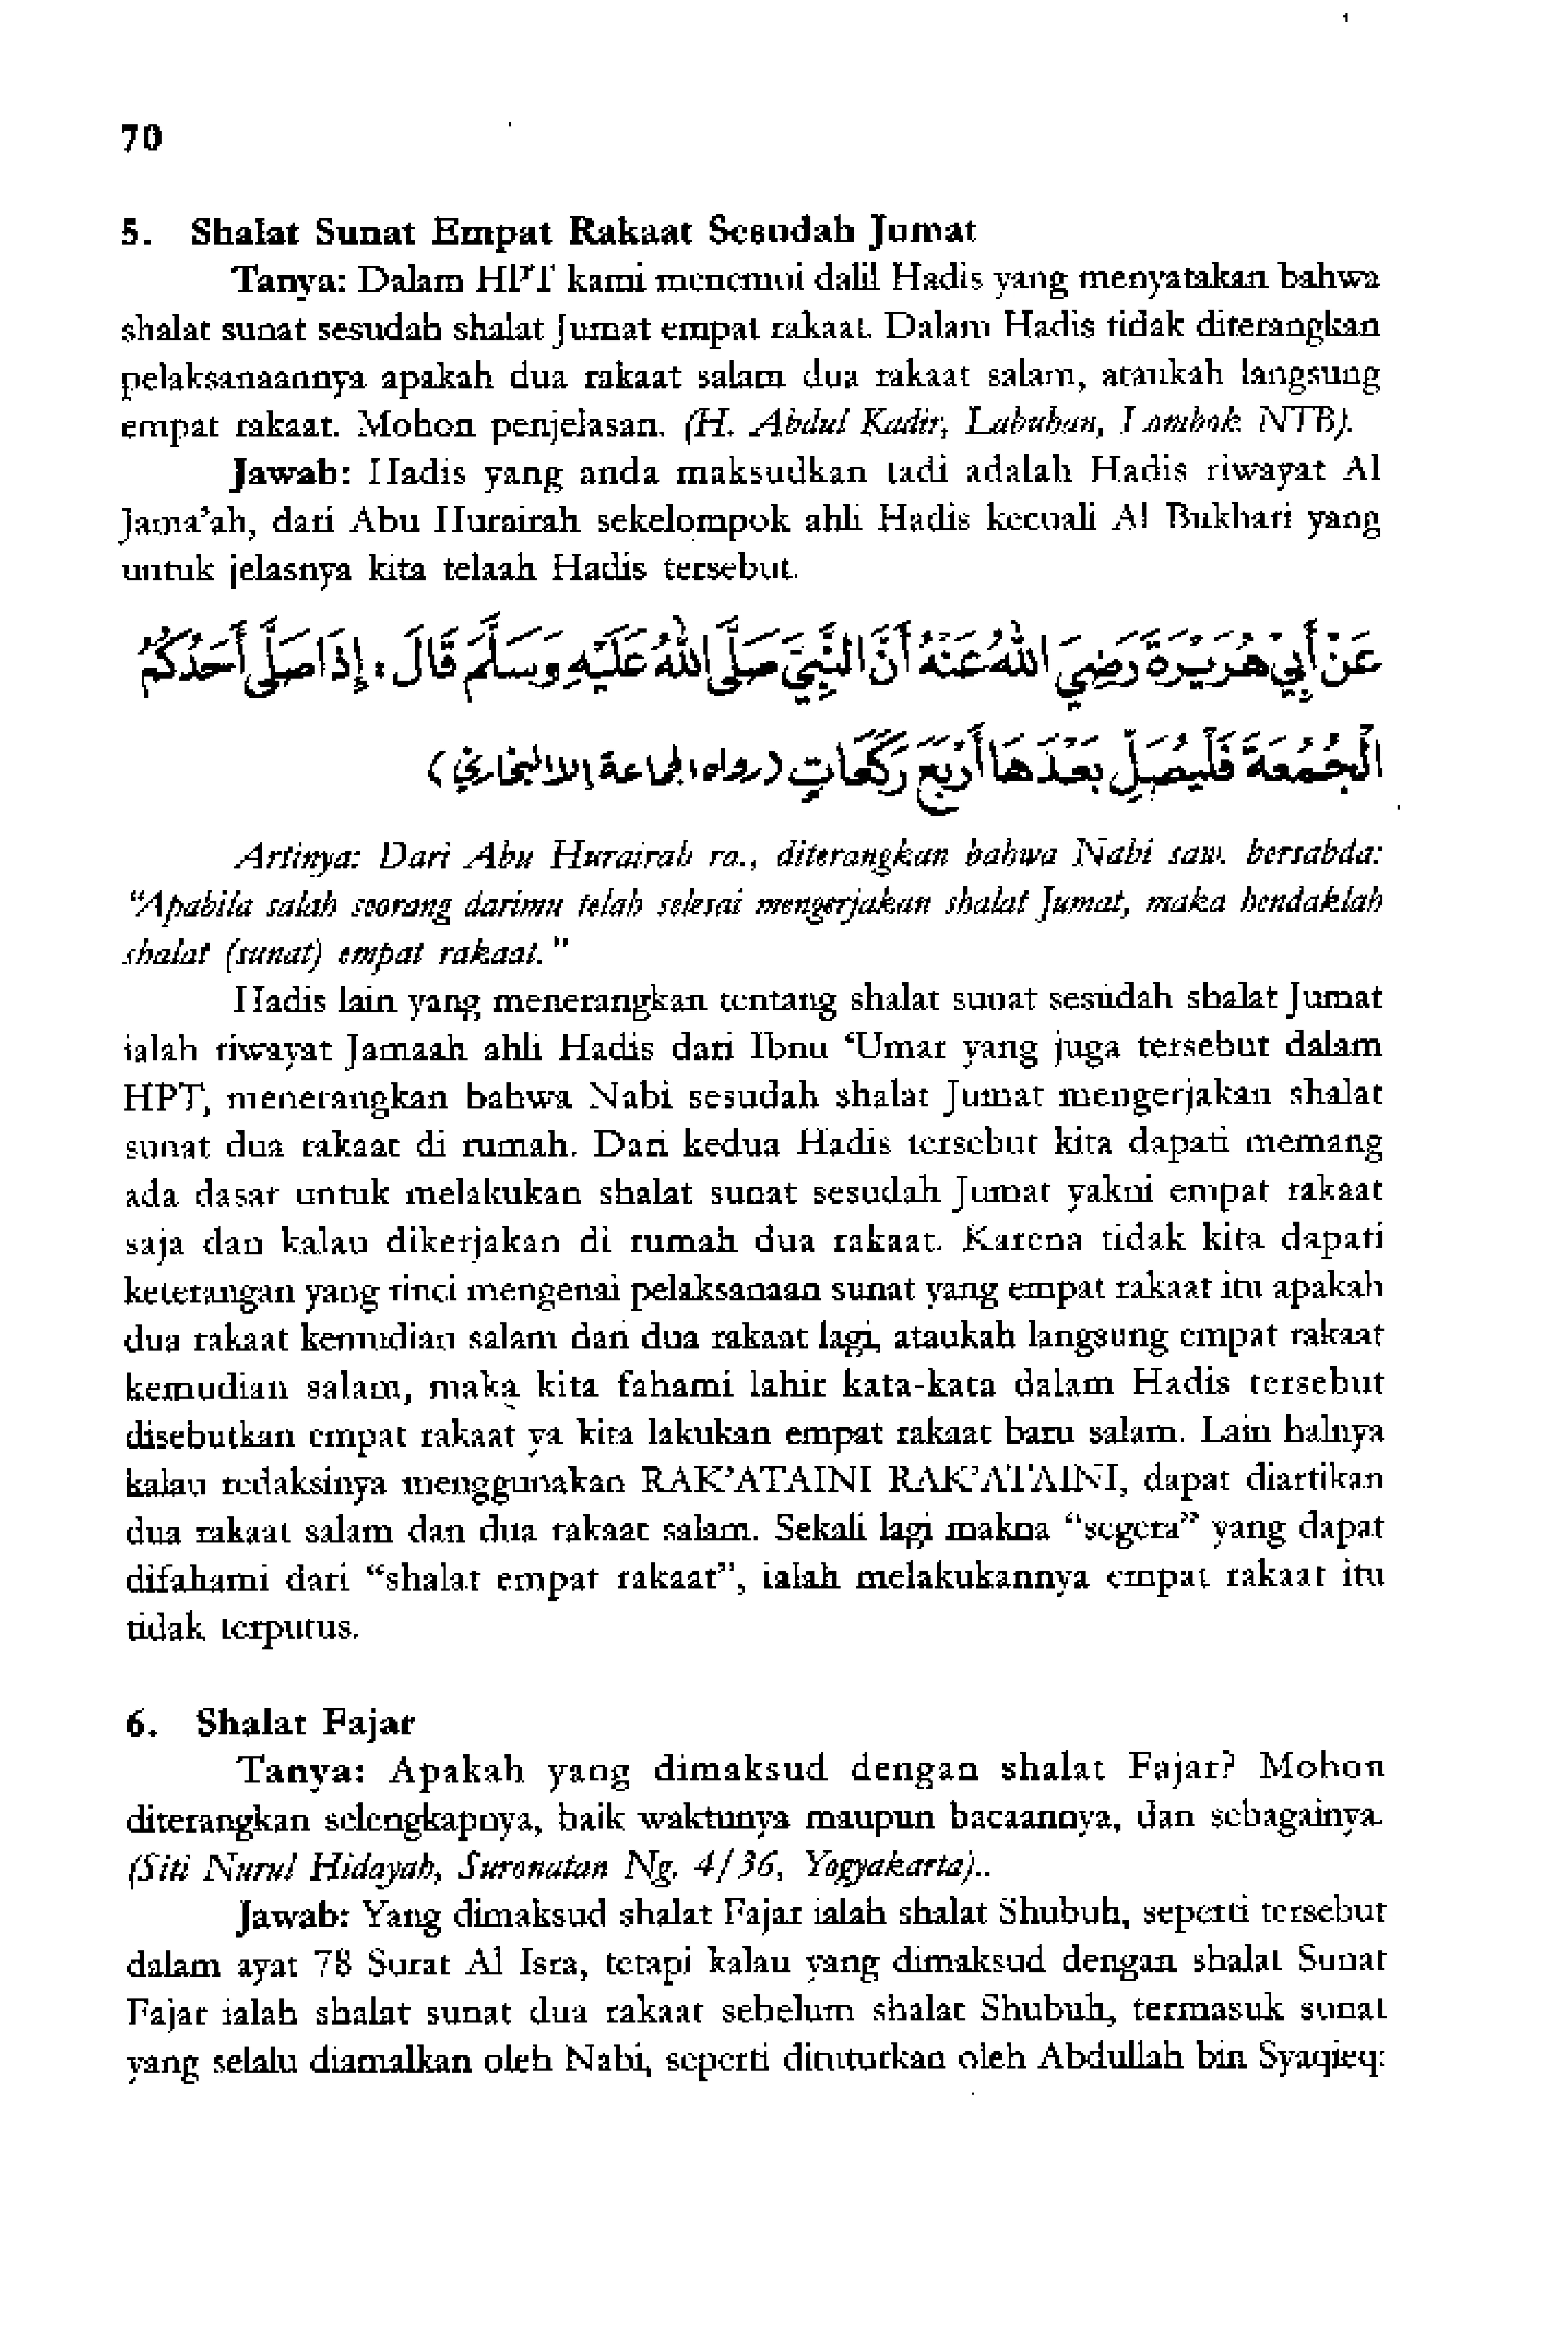 70
5. Shalat Sunat Empat Rakaat Sesudah Jumat
Tanya: Dalam HPT kami menemui dalil Hadis yang menyatakan bahwa
shalat sunat sesudah shalat Jumat empat rakaat. Dalam Hadis tidak diterangkan
pelaksanaannya apakah dua rakaat salam dua rakaat salam, ataukah langsung
empat rakaat. Mohon penjelasan. (H. Abdul Kadir, Labuhan, Lombok NTB).
Jawab: Hadis yang anda maksudkan tadi adalah Hadis riwayat Al
Jama'ah, dari Abu Hurairah sekelompok ahli Hadis kecuali Al Bukhari yang
untuk jelasnya kita telaah Hadis tersebut.
عَنْ أَبِي هُرَيْرَةَ رَضِيَ اللهُ عَنْهُ أَنَّ النَّبِيَّ صَلَّى اللهُ عَلَيْهِ وَسَلَّمَ قَالَ: إِذَا صَلَّى أَحَدُكُمُ
الْجُمُعَةَ فَلْيُصَلِّ بَعْدَهَا أَرْبَعَ رَكَعَاتٍ (رواه الجماعة إلا البخاري)
Artinya: Dari Abu Hurairah ra., diterangkan bahwa Nabi saw. bersabda:
"Apabila salah seorang darimu telah selesai mengerjakan shalat Jumat, maka hendaklah
shalat (sunat) empat rakaat."
Hadis lain yang menerangkan tentang shalat sunat sesudah shalat Jumat
ialah riwayat Jamaah ahli Hadis dari Ibnu 'Umar yang juga tersebut dalam
HPT, menerangkan bahwa Nabi sesudah shalat Jumat mengerjakan shalat
sunat dua rakaat di rumah. Dari kedua Hadis tersebut kita dapati memang
ada dasar untuk melakukan shalat sunat sesudah Jumat yakni empat rakaat
saja dan kalau dikerjakan di rumah dua rakaat. Karena tidak kita dapati
keterangan yang rinci mengenai pelaksanaan sunat yang empat rakaat itu apakah
dua rakaat kemudian salam dan dua rakaat lagi, ataukah langsung empat rakaat
kemudian salam, maka kita fahami lahir kata-kata dalam Hadis tersebut
disebutkan empat rakaat ya kita lakukan empat rakaat baru salam. Lain halnya
kalau redaksinya menggunakan RAK'ATAINI RAK'ATAINI, dapat diartikan
dua rakaat salam dan dua rakaat salam. Sekali lagi makna "segera" yang dapat
difahami dari "shalat empat rakaat", ialah melakukannya empat rakaat itu
tidak terputus.
6. Shalat Fajar
Tanya: Apakah yang dimaksud dengan shalat Fajar? Mohon
diterangkan selengkapnya, baik waktunya maupun bacaannya, dan sebagainya.
(Siti Nurul Hidayah, Suronatan Ng. 4/36, Yogyakarta)..
Jawab: Yang dimaksud shalat Fajar ialah shalat Shubuh, seperti tersebut
dalam ayat 78 Surat Al Isra, tetapi kalau yang dimaksud dengan shalat Sunat
Fajar ialah shalat sunat dua rakaat sebelum shalat Shubuh, termasuk sunat
yang selalu diamalkan oleh Nabi, seperti dituturkan oleh Abdullah bin Syaqieq: